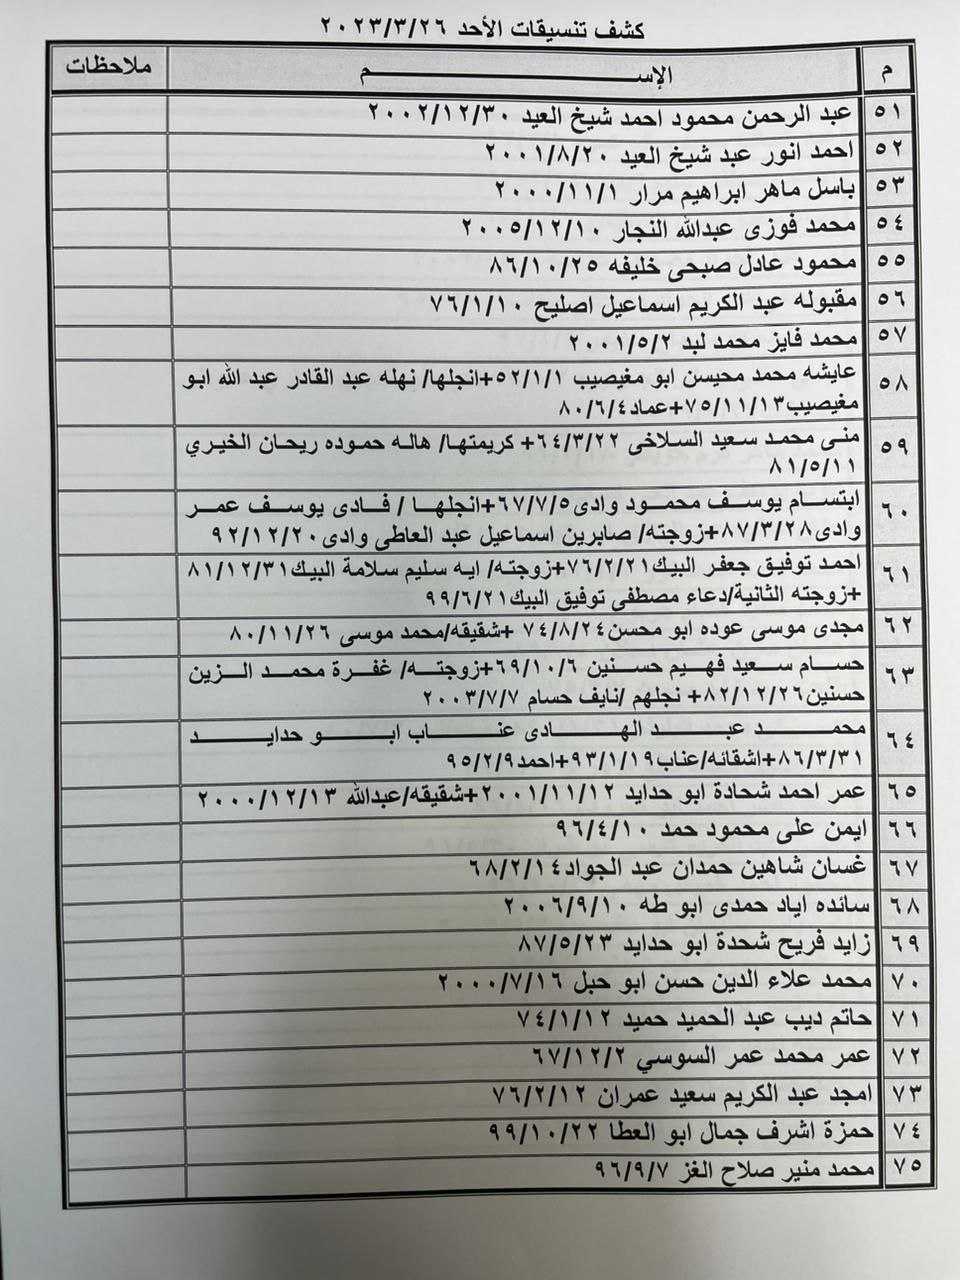 كشف تنسيقات الأحد ٢٠٢٣/٣/٢٦
م الإســـــم ملاحظات
٥١ عبد الرحمن محمود احمد شيخ العيد ٢٠٠٢/١٢/٣٠
٥٢ احمد انور عبد شيخ العيد ٢٠٠١/٨/٢٠
٥٣ باسل ماهر ابراهيم مرار ٢٠٠٠/١١/١
٥٤ محمد فوزى عبدالله النجار ٢٠٠٥/١٢/١٠
٥٥ محمود عادل صبحى خليفه ٨٦/١٠/٢٥
٥٦ مقبوله عبد الكريم اسماعيل اصليح ٧٦/١/١٠
٥٧ محمد فايز محمد لبد ٢٠٠١/٥/٢
٥٨ عايشه محمد محيسن ابو مغيصيب ٥٢/١/١+انجلها/ نهله عبد القادر عبد الله ابو
مغيصيب٧٥/١١/١٣+عماد٨٠/٦/٤
٥٩ منى محمد سعيد السلاخى ٦٤/٣/٢٢+ كريمتها/ هاله حموده ريحان الخيري
٨١/٥/١١
٦٠ ابتسام يوسف محمود وادى٦٧/٧/٥+انجلها / فادى يوسف عمر
وادى٨٧/٣/٢٨+زوجته/ صابرين اسماعيل عبد العاطى وادى٩٢/١٢/٢٠
٦١ احمد توفيق جعفر البيك٧٦/٢/٢١+زوجته/ ايه سليم سلامة البيك٨١/١٢/٣١
+زوجته الثانية/دعاء مصطفى توفيق البيك٩٩/٦/٢١
٦٢ مجدى موسى عوده ابو محسن٧٤/٨/٢٤ +شقيقه/محمد موسى ٨٠/١١/٢٦
٦٣ حسام سعيد فهيم حسنين ٦٩/١٠/٦+زوجته/ غفرة محمد الزين
حسنين٨٢/١٢/٢٦+ نجلهم /نايف حسام ٢٠٠٣/٧/٧
٦٤ محمد عبد الهادى عناب ابو حدايد
٨٦/٣/٣١+اشقائه/عناب٩٣/١/١٩+احمد٩٥/٢/٩
٦٥ عمر احمد شحادة ابو حدايد ٢٠٠١/١١/١٢+شقيقه/عبدالله ٢٠٠٠/١٢/١٣
٦٦ ايمن على محمود حمد ٩٦/٤/١٠
٦٧ غسان شاهين حمدان عبد الجواد٦٨/٢/١٤
٦٨ سائده اياد حمدى ابو طه ٢٠٠٦/٩/١٠
٦٩ زايد فريح شحدة ابو حدايد ٨٧/٥/٢٣
٧٠ محمد علاء الدين حسن ابو حبل ٢٠٠٠/٧/١٦
٧١ حاتم ديب عبد الحميد حميد ٧٤/١/١٢
٧٢ عمر محمد عمر السوسي ٦٧/١٢/٢
٧٣ امجد عبد الكريم سعيد عمران ٧٦/٢/١٢
٧٤ حمزة اشرف جمال ابو العطا ٩٩/١٠/٢٢
٧٥ محمد منير صلاح الغز ٩٦/٩/٧